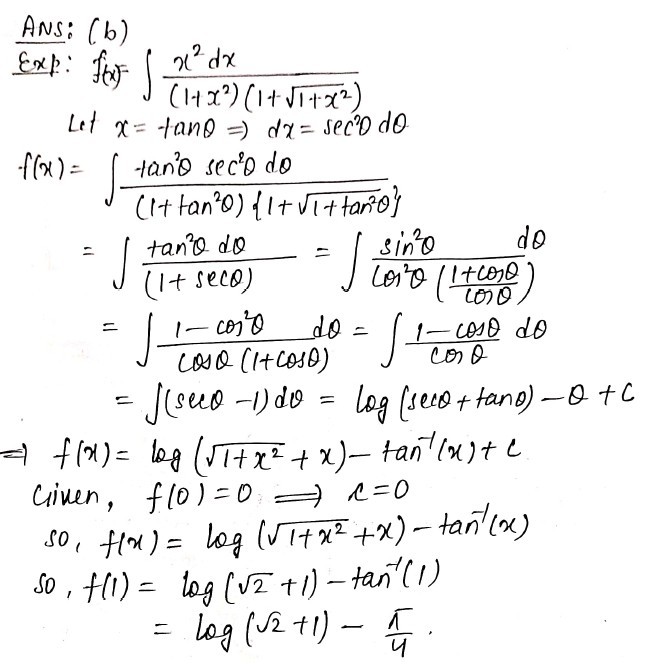 ANS: (b)
Exp: f(x)= ∫ x² dx / (1+x²)(1+√1+x²)
Let x = tanθ ⇒ dx = sec²θ dθ
f(x) = ∫ tan²θ sec²θ dθ / (1+tan²θ){1+√1+tan²θ}
= ∫ tan²θ dθ / (1+secθ) = ∫ sin²θ dθ / cos²θ (1+cosθ / cosθ)
= ∫ 1-cos²θ dθ / cosθ (1+cosθ) = ∫ 1-cosθ / cosθ dθ
= ∫(secθ -1)dθ = log(secθ + tanθ) - θ + C
⇒ f(x) = log(√1+x² + x) - tan⁻¹(x) + c
Given, f(0) = 0 ⟹ c = 0
so, f(x) = log(√1+x² +x) - tan⁻¹(x)
so, f(1) = log(√2 +1) - tan⁻¹(1)
= log(√2 +1) - π/4.